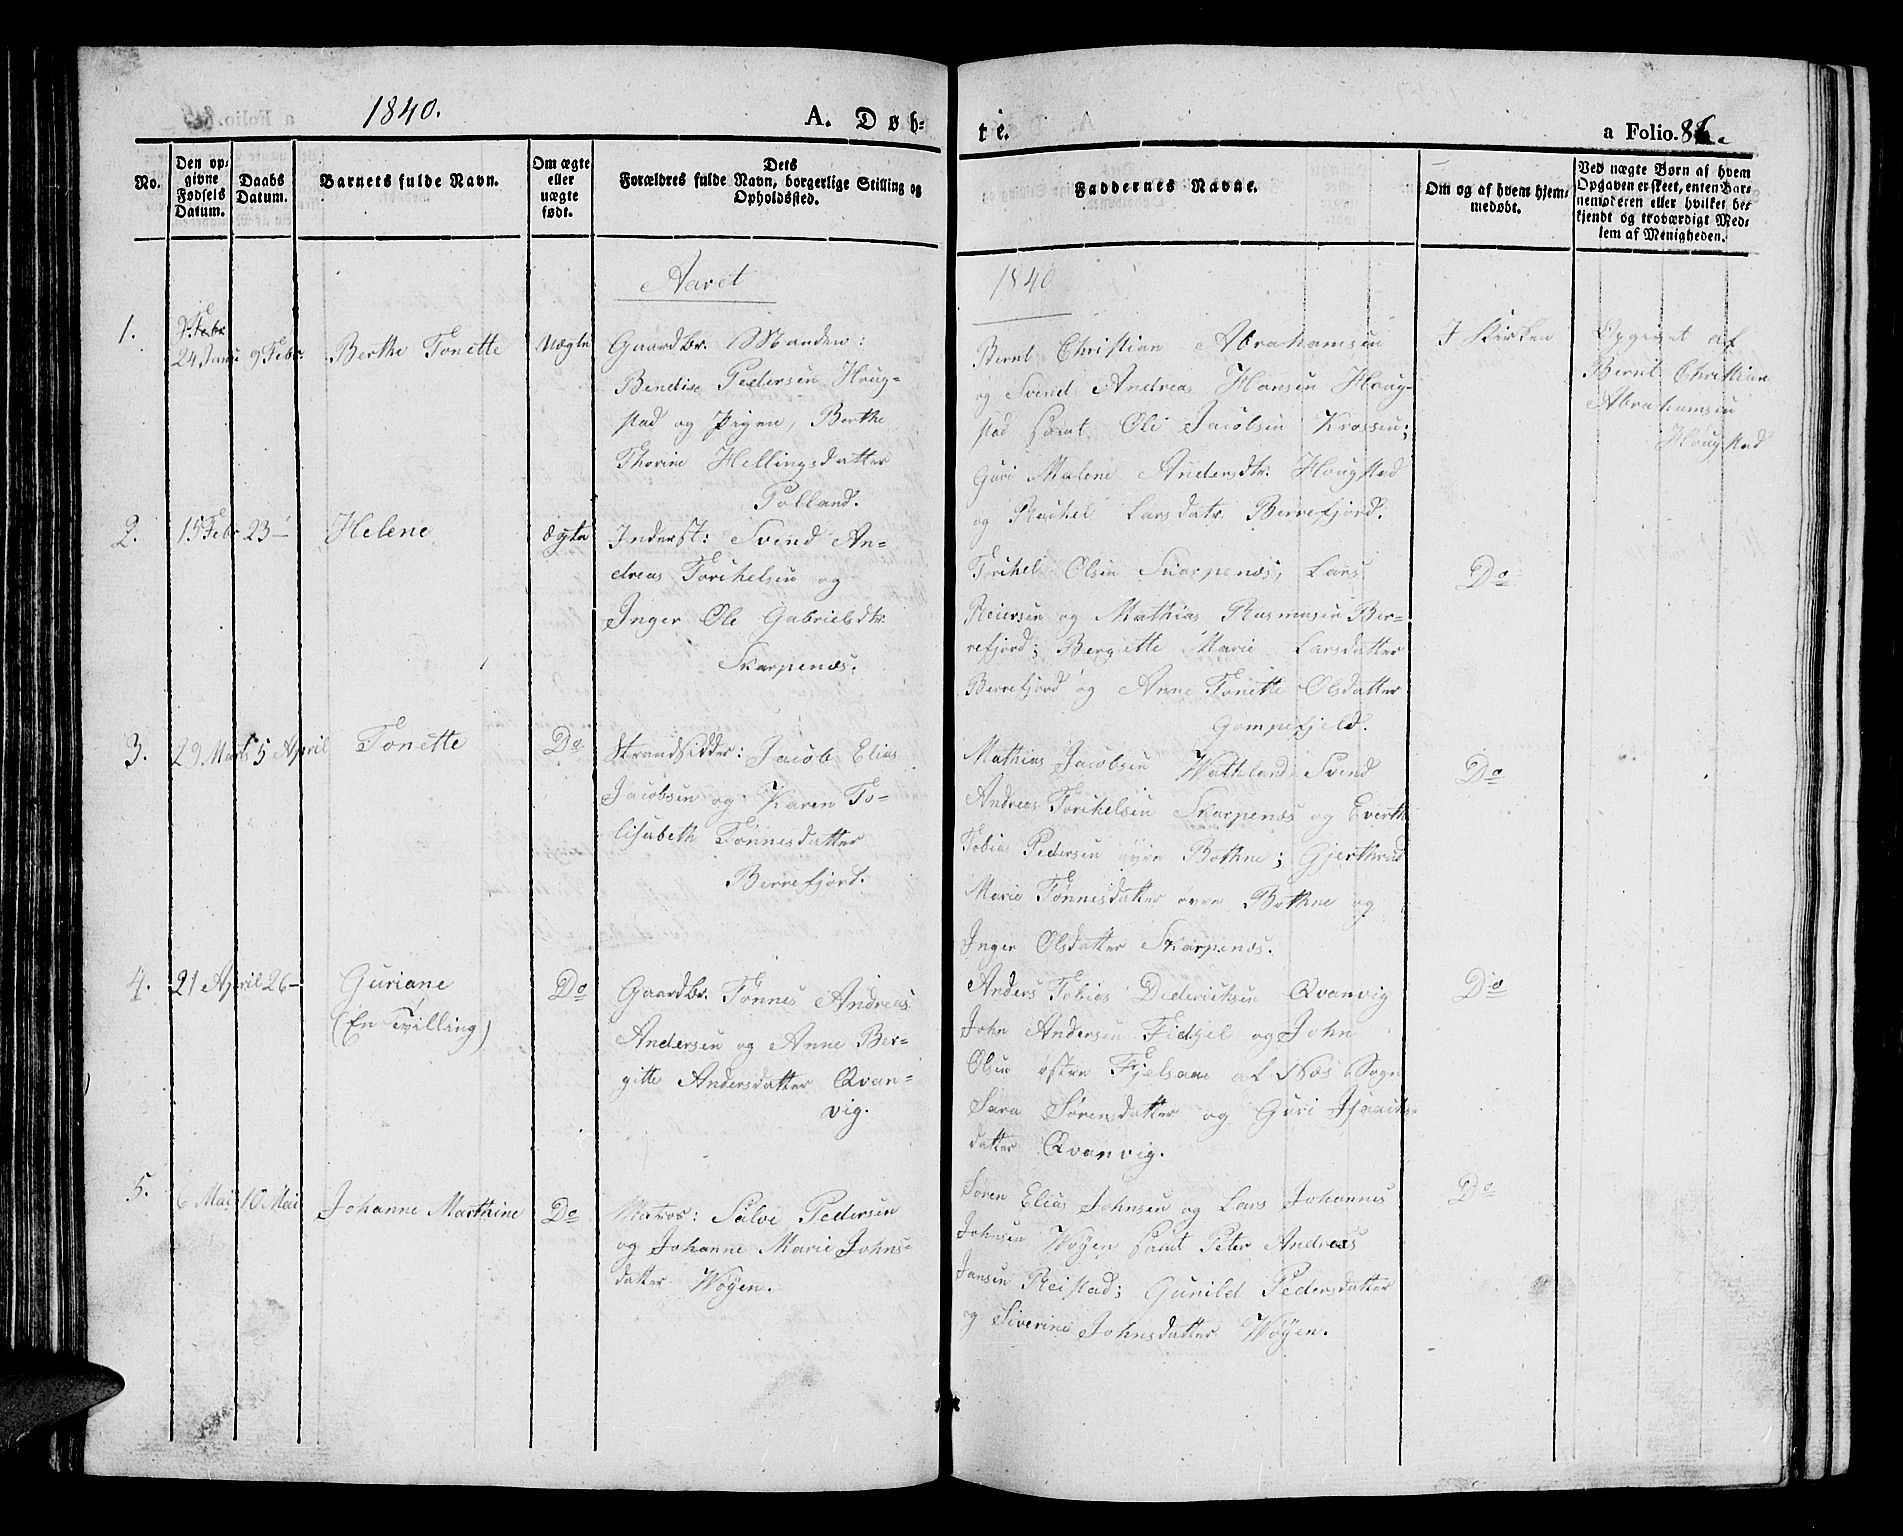 1840.
A. Døb-
te.
a Folio. 86.
No.
Den op-
givne
Fødsels
Datum.
Daabs
Datum.
Barnets fulde Navn.
Om ægte
eller
uægte
født.
Dets
Forældres fulde Navn, borgerlige Stilling og
Opholdssted.
Faddernes Navne.
Om og af hvem hjem-
medøbt.
Ved uægte Børn af hvem
Opgaven er skeet, enten Bar-
nemoderen eller hvilket be-
kjendt og troværdigt Med-
lem af Menigheden.
Aaret
1840
1.
24 Janu
9 Febr.
Berthe Tonette
Uægte
Gaardbr. Manden:
Bendix Pedersen Houg-
stad og Pigen, Berthe
Thorine Hellingsdatter
Tolland.
Bernt Christian Abrahamsen
og Svend Andreas Hansen Houg-
stad samt Ole Jacobsen Krossen;
Guri Malene Andersdtr. Hougstad
og Rachel Larsdatr Berrefjord.
I Kirken
Opgivet af
Bernt Christian
Abrahamsen
Hougstad
2.
15 Febr
23 -
Helene
ægte
Inderst: Svend An-
dreas Torchelsen og
Inger Ole Gabrielsdtr.
Skarpenæs.
Torchel Olsen Skarpenæs, Lars
Reiersen og Mathias Rasmusen Ber-
refjord; Bergitte Marie Larsdatter
Berrefjord og Anne Tonette Olsdatter
Gompefjeld.
Do
3.
29 Marts
5 April
Tonette
Do
Strandsidder: Jacob Elias
Jacobsen og Karen To-
lisabeth Tønnesdatter
Berrefjord.
Mathias Jacobsen Wathland, Svend
Andreas Torchelsen Skarpenæs og Everth
Tobias Pedersen øvre Bothne; Gjerthrud
Marie Tønnesdatter øvre Bothne og
Inger Olsdatter Skarpenæs.
Do
4.
21 April
26 -
Guriane
(En Tvilling)
Do
Gaardbr. Tønnes Andreas
Andersen og Anne Ber-
gitte Andersdatter Qvan-
vig.
Anders Tobias Diderichsen Qvanvig
John Andersen Fidjel og John
Olsen østre Fjelsaae af Næs Sogn
Sara Sørensdatter og Guri Isaachs-
datter Qvanvig.
Do
5.
6 Mai
10 Mai
Johanne Marthine
Do
Matros: Salve Pedersen
og Johanne Marie Johns-
datter Wøyen.
Søren Elias Johnsen og Lars Johannes
Johnsen Wøyen samt Peter Andreas
Jansen Reistad; Gunild Pedersdatter
og Siverine Johnsdatter Wøyen.
Do